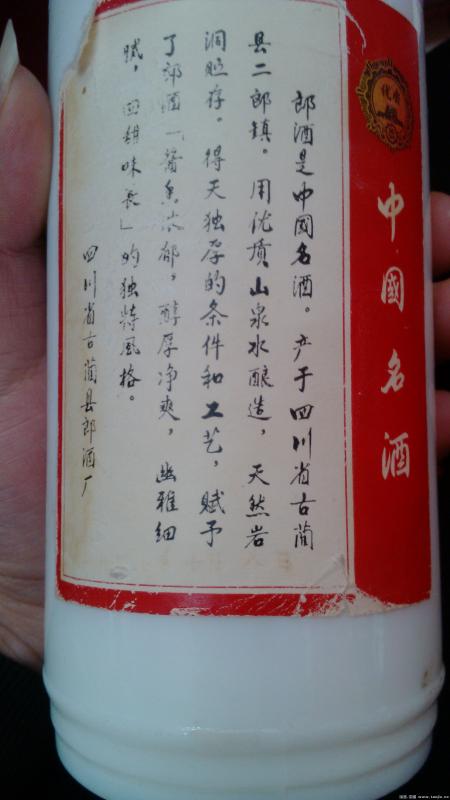 中國名酒
优质
郎酒是中國名酒。产于四川省古蔺
县二郎镇。用优质山泉水酿造，天然岩
洞贮存。得天独厚的条件和工艺，赋予
了郎酒“酱香浓郁，醇厚净爽，幽雅细
腻，回甜味长”的独特风格。
四川省古蔺县郎酒厂